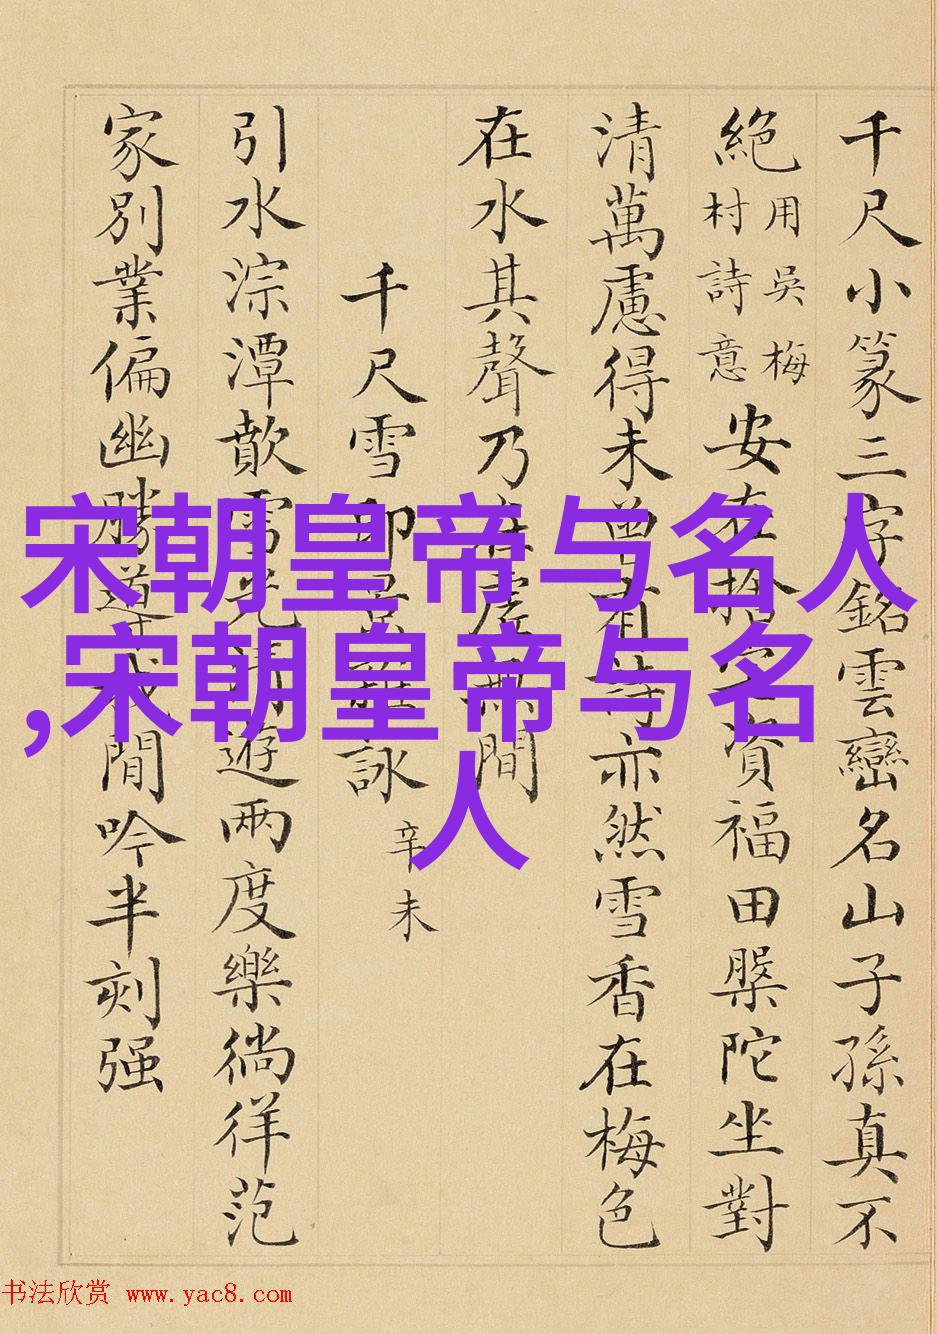 千尺小篆三字銘雲巒名山子孫真不
絕用吳梅村詩意安在拾字資福田槃陀坐對
清萬慮得未曾有詩亦然雪香在梅色
在水其聲乃在虛無間
千尺雪即景雜詠辛未
引水淙潭歕雪光清遊兩度樂徜徉范
家別業偏幽勝導我閒吟半刻强
宋朝皇帝与名人
,宋朝皇帝与名
人
书法欣赏 www.yac8.com